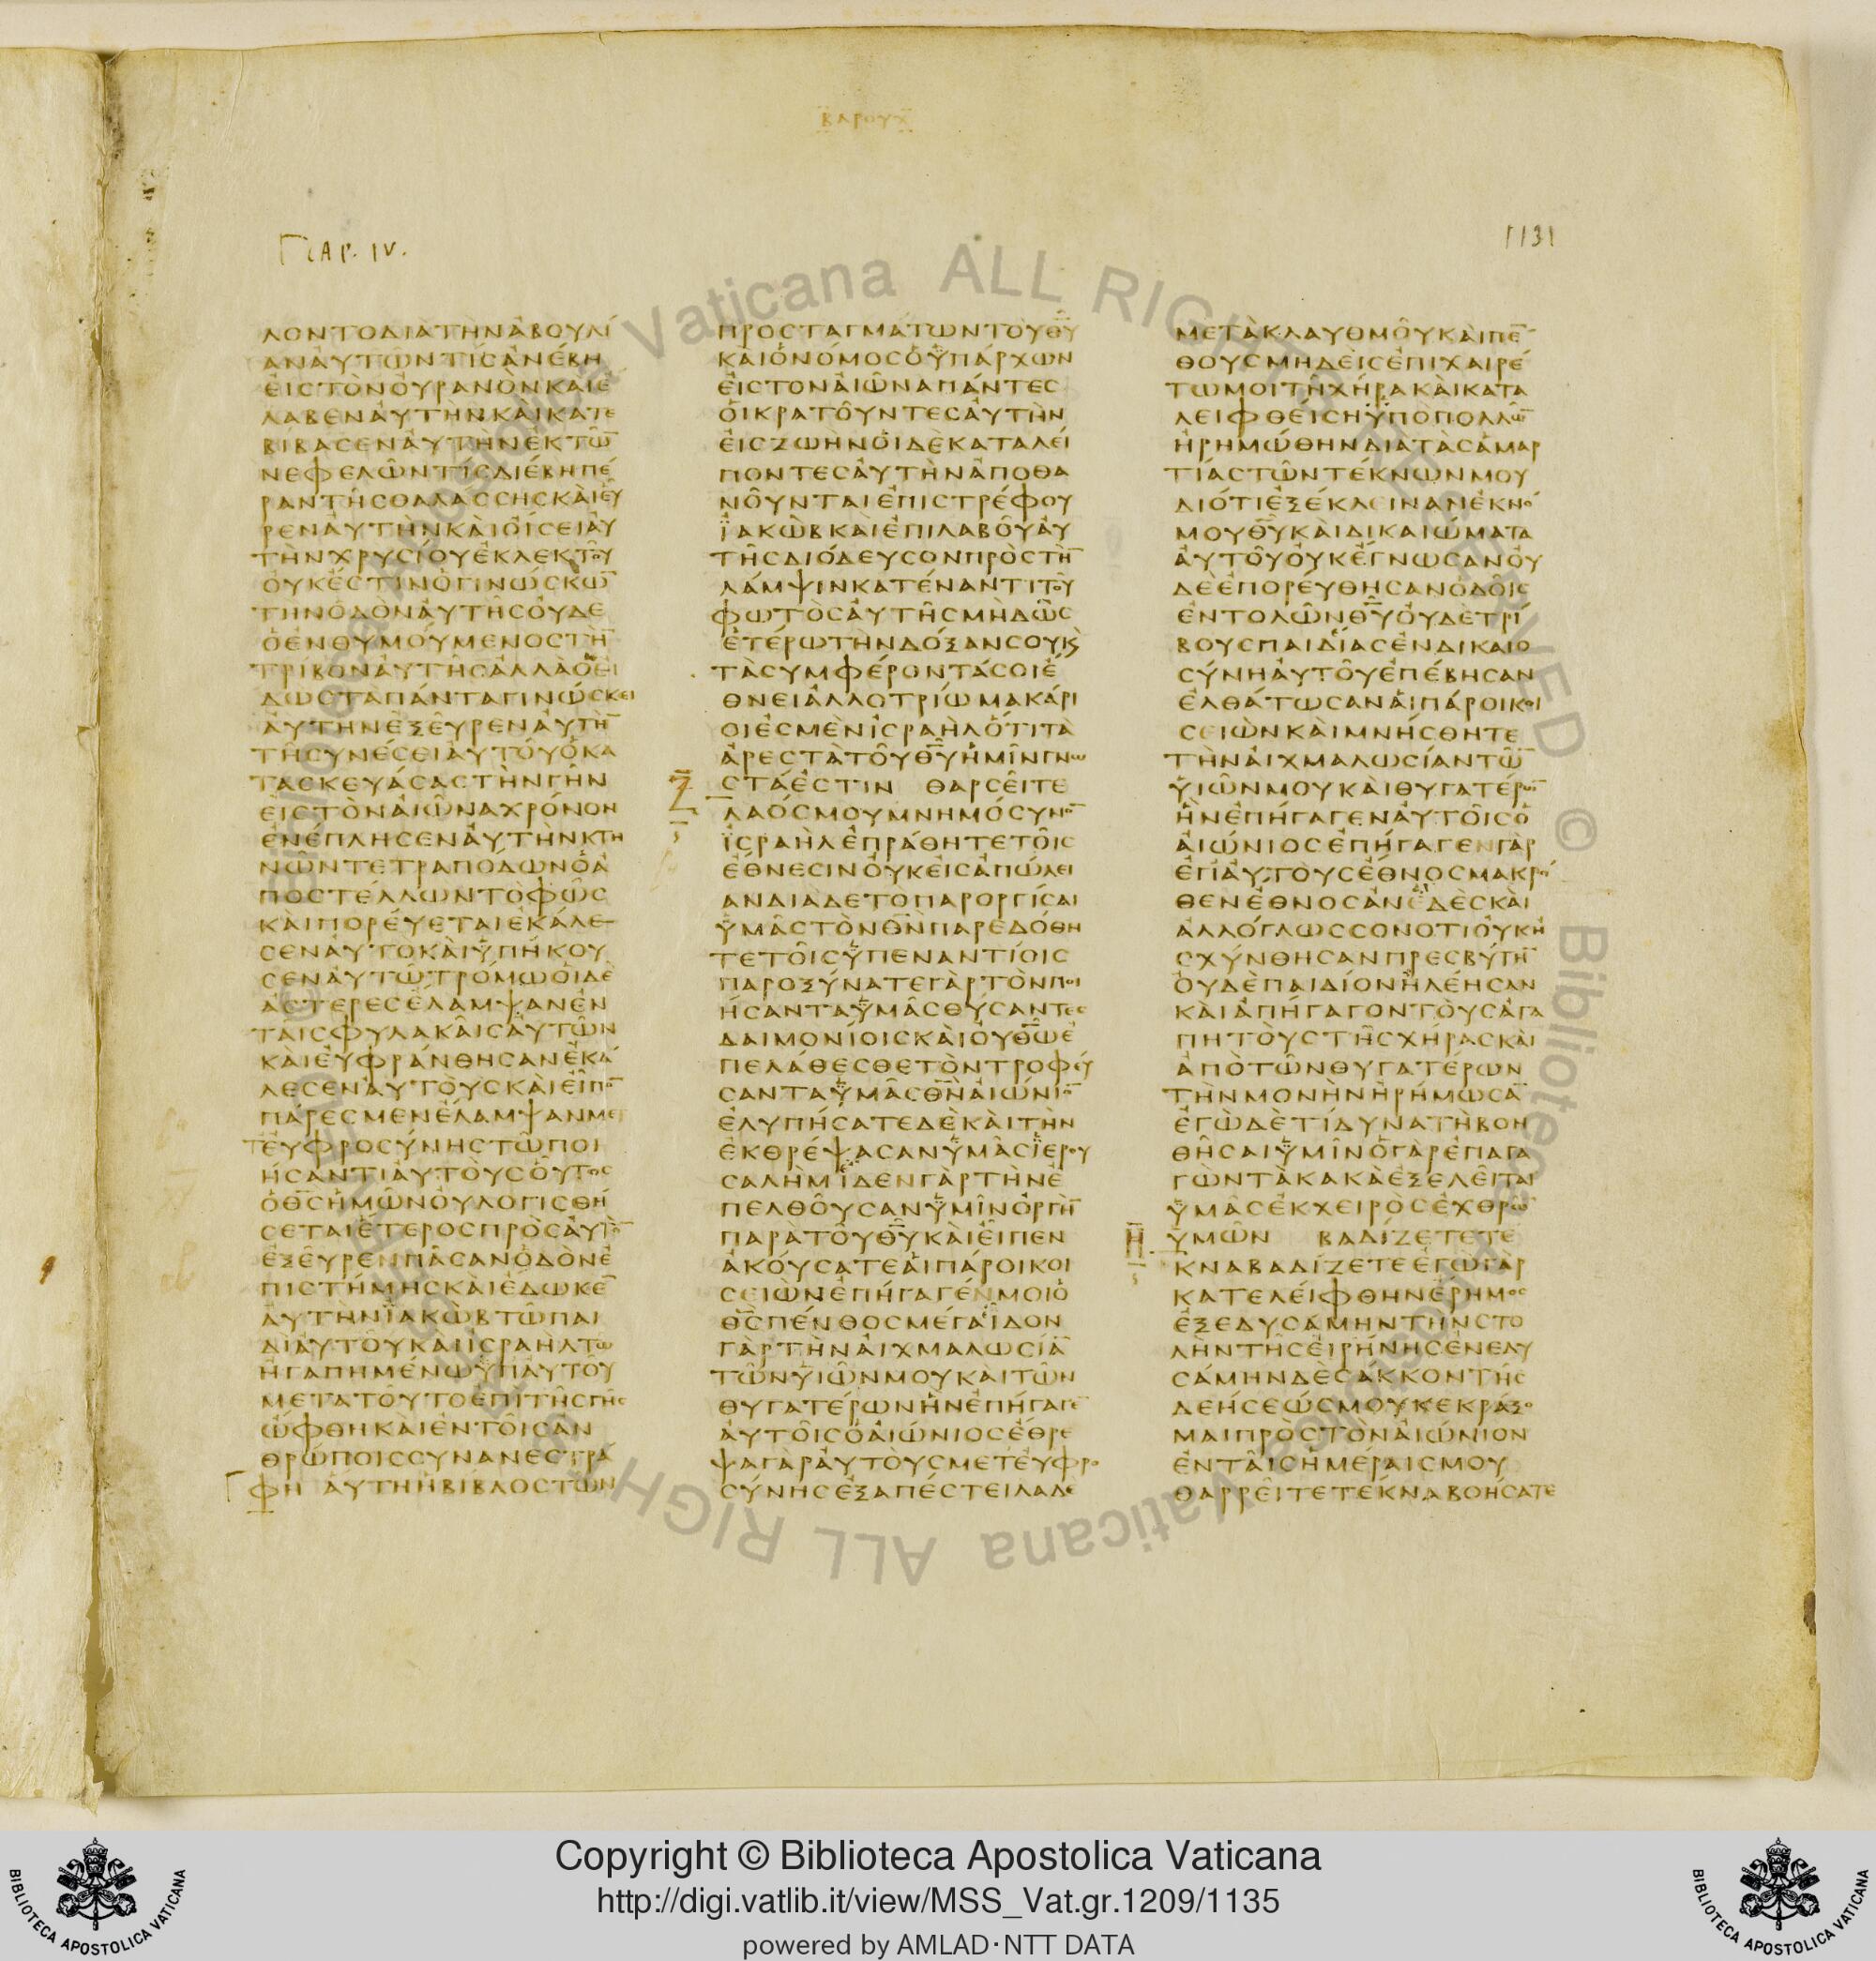 ΒΑΡΟΥΧ
CAP. IV.
1131
ΛΟΝΤΟΔΙΑΤΗΝΑΒΟΥΛΙ
ΑΝΑΥΤΩΝΤΙΣΑΝΕΒΗ
ΕΙΣΤΟΝΟΥΡΑΝΟΝΚΑΙΕ
ΛΑΒΕΝΑΥΤΗΝΚΑΙΚΑΤΕ
ΒΙΒΑΣΕΝΑΥΤΗΝΕΚΤΩ̅
ΝΕΦΕΛΩΝΤΙΣΔΙΕΒΗΠΕ
ΡΑΝΤΗΣΘΑΛΑΣΣΗΣΚΑΙΕΥ
ΡΕΝΑΥΤΗΝΚΑΙΟΙΣΕΙΑΥ
ΤΗΝΧΡΥΣΙΟΥΕΚΛΕΚΤΟΥ
ΟΥΚΕΣΤΙΝΟΓΙΝΩΣΚΩ̅
ΤΗΝΟΔΟΝΑΥΤΗΣΟΥΔΕ
ΟΕΝΘΥΜΟΥΜΕΝΟΣΤΗ̅
ΤΡΙΒΟΝΑΥΤΗΣΑΛΛΑΟΕΙ
ΔΩΣΤΑΠΑΝΤΑΓΙΝΩΣΚΕΙ
ΑΥΤΗΝΕΞΕΥΡΕΝΑΥΤΗ̅
ΤΗΣΥΝΕΣΕΙΑΥΤΟΥΟΚΑ
ΤΑΣΚΕΥΑΣΑΣΤΗΝΓΗΝ
ΕΙΣΤΟΝΑΙΩΝΑΧΡΟΝΟΝ
ΕΝΕΠΛΗΣΕΝΑΥΤΗΝΚΤΗ
ΝΩΝΤΕΤΡΑΠΟΔΩΝΟΑ
ΠΟΣΤΕΛΛΩΝΤΟΦΩΣ
ΚΑΙΠΟΡΕΥΕΤΑΙΕΚΑΛΕ
ΣΕΝΑΥΤΟΚΑΙΥΠΗΚΟΥ
ΣΕΝΑΥΤΩΤΡΟΜΩΟΙΔΕ
ΑΣΤΕΡΕΣΕΛΑΜΨΑΝΕΝ
ΤΑΙΣΦΥΛΑΚΑΙΣΑΥΤΩΝ
ΚΑΙΕΥΦΡΑΝΘΗΣΑΝΕΚΑ
ΛΕΣΕΝΑΥΤΟΥΣΚΑΙΕΙΠΟ̅
ΠΑΡΕΣΜΕΝΕΛΑΜΨΑΝΜΕ
ΤΕΥΦΡΟΣΥΝΗΣΤΩΠΟΙ
ΗΣΑΝΤΙΑΥΤΟΥΣΟΥΤΟΣ
ΟΘ̅Σ̅ΗΜΩΝΟΥΛΟΓΙΣΘΗ
ΣΕΤΑΙΕΤΕΡΟΣΠΡΟΣΑΥΤΟ̅
ΕΞΕΥΡΕΝΠΑΣΑΝΟΔΟΝΕ
ΠΙΣΤΗΜΗΣΚΑΙΕΔΩΚΕ̅
ΑΥΤΗΝΪΑΚΩΒΤΩΠΑΙ
ΔΙΑΥΤΟΥΚΑΙΙΣΡΑΗΛΤΩ
ΗΓΑΠΗΜΕΝΩΥΠΑΥΤΟΥ
ΜΕΤΑΤΟΥΤΟΕΠΙΤΗΣΓΗΣ
ΩΦΘΗΚΑΙΕΝΤΟΙΣΑΝ
ΘΡΩΠΟΙΣΣΥΝΑΝΕΣΤΡΑ
ΦΗ ΑΥΤΗΗΒΙΒΛΟΣΤΩΝ
ΠΡΟΣΤΑΓΜΑΤΩΝΤΟΥΘ̅Υ̅
ΚΑΙΟΝΟΜΟΣΟΥΠΑΡΧΩΝ
ΕΙΣΤΟΝΑΙΩΝΑΠΑΝΤΕΣ
ΟΙΚΡΑΤΟΥΝΤΕΣΑΥΤΗΝ
ΕΙΣΖΩΗΝΟΙΔΕΚΑΤΑΛΕΙ
ΠΟΝΤΕΣΑΥΤΗΝΑΠΟΘΑ
ΝΟΥΝΤΑΙΕΠΙΣΤΡΕΦΟΥ
ΪΑΚΩΒΚΑΙΕΠΙΛΑΒΟΥΑΥ
ΤΗΣΔΙΟΔΕΥΣΟΝΠΡΟΣΤΗ̅
ΛΑΜΨΙΝΚΑΤΕΝΑΝΤΙΤΟΥ
ΦΩΤΟΣΑΥΤΗΣΜΗΔΩΣ
ΕΤΕΡΩΤΗΝΔΟΞΑΝΣΟΥΚϚ
ΤΑΣΥΜΦΕΡΟΝΤΑΣΟΙΕ
ΘΝΕΙΑΛΛΟΤΡΙΩΜΑΚΑΡΙ
ΟΙΕΣΜΕΝΙΣΡΑΗΛΟΤΙΤΑ
ΑΡΕΣΤΑΤΟΥΘ̅Υ̅ΗΜΙΝΓΝΩ
ΣΤΑΕΣΤΙΝ ΘΑΡΣΕΙΤΕ
ΛΑΟΣΜΟΥΜΝΗΜΟΣΥΝΟ̅
ΪΣΡΑΗΛΕΠΡΑΘΗΤΕΤΟΙΣ
ΕΘΝΕΣΙΝΟΥΚΕΙΣΑΠΩΛΕΙ
ΑΝΔΙΑΔΕΤΟΠΑΡΟΡΓΙΣΑΙ
ΥΜΑΣΤΟΝΘ̅Ν̅ΠΑΡΕΔΟΘΗ
ΤΕΤΟΙΣΥΠΕΝΑΝΤΙΟΙΣ
ΠΑΡΟΞΥΝΑΤΕΓΑΡΤΟΝΠΟΙ
ΗΣΑΝΤΑΥΜΑΣΘΥΣΑΝΤΕΣ
ΔΑΙΜΟΝΙΟΙΣΚΑΙΟΥΘ̅Ω̅Ε
ΠΕΛΑΘΕΣΘΕΤΟΝΤΡΟΦΕΥ
ΣΑΝΤΑΥΜΑΣΘ̅Ν̅ΑΙΩΝΙΟ̅
ΕΛΥΠΗΣΑΤΕΔΕΚΑΙΤΗΝ
ΕΚΘΡΕΨΑΣΑΝΥΜΑΣΪΕΡΟΥ
ΣΑΛΗΜΪΔΕΝΓΑΡΤΗΝΕ
ΠΕΛΘΟΥΣΑΝΥΜΙΝΟΡΓΗ̅
ΠΑΡΑΤΟΥΘ̅Υ̅ΚΑΙΕΙΠΕΝ
ΑΚΟΥΣΑΤΕΑΙΠΑΡΟΙΚΟΙ
ΣΕΙΩΝΕΠΗΓΑΓΕΝΜΟΙΟ
Θ̅Σ̅ΠΕΝΘΟΣΜΕΓΑΪΔΟΝ
ΓΑΡΤΗΝΑΙΧΜΑΛΩΣΙΑ̅
ΤΩΝΥΙΩΝΜΟΥΚΑΙΤΩΝ
ΘΥΓΑΤΕΡΩΝΗΝΕΠΗΓΑΓΕ̅
ΑΥΤΟΙΣΟΑΙΩΝΙΟΣΕΘΡΕ
ΨΑΓΑΡΑΥΤΟΥΣΜΕΤΕΥΦΡΟ
ΣΥΝΗΣΕΞΑΠΕΣΤΕΙΛΑΔΕ
ΜΕΤΑΚΛΑΥΘΜΟΥΚΑΙΠΕ̅
ΘΟΥΣΜΗΔΕΙΣΕΠΙΧΑΙΡΕ
ΤΩΜΟΙΤΗΧΗΡΑΚΑΙΚΑΤΑ
ΛΕΙΦΘΕΙΣΗΫΠΟΠΟΛΛΩ̅
ΗΡΗΜΩΘΗΝΔΙΑΤΑΣΑΜΑΡ
ΤΙΑΣΤΩΝΤΕΚΝΩΝΜΟΥ
ΔΙΟΤΙΕΞΕΚΛΕΙΝΑΝΕΚΝΟ
ΜΟΥΘ̅Υ̅ΚΑΙΔΙΚΑΙΩΜΑΤΑ
ΑΥΤΟΥΟΥΚΕΓΝΩΣΑΝΟΥ
ΔΕΕΠΟΡΕΥΘΗΣΑΝΟΔΟΙΣ
ΕΝΤΟΛΩΝΘ̅Υ̅ΟΥΔΕΤΡΙ
ΒΟΥΣΠΑΙΔΙΑΣΕΝΔΙΚΑΙΟ
ΣΥΝΗΑΥΤΟΥΕΠΕΒΗΣΑΝ
ΕΛΘΑΤΩΣΑΝΑΙΠΑΡΟΙΚΟΙ
ΣΕΙΩΝΚΑΙΜΝΗΣΘΗΤΕ
ΤΗΝΑΙΧΜΑΛΩΣΙΑΝΤΩ̅
ΥΙΩΝΜΟΥΚΑΙΘΥΓΑΤΕΡΩ̅
ΗΝΕΠΗΓΑΓΕΝΑΥΤΟΙΣΟ
ΑΙΩΝΙΟΣΕΠΗΓΑΓΕΝΓΑΡ
ΕΠΑΥΤΟΥΣΕΘΝΟΣΜΑΚΡΟ
ΘΕΝΕΘΝΟΣΑΝΕΔΕΣΚΑΙ
ΑΛΛΟΓΛΩΣΣΟΝΟΤΙΟΥΚΗ
ΣΧΥΝΘΗΣΑΝΠΡΕΣΒΥΤΗ̅
ΟΥΔΕΠΑΙΔΙΟΝΗΛΕΗΣΑΝ
ΚΑΙΑΠΗΓΑΓΟΝΤΟΥΣΑΓΑ
ΠΗΤΟΥΣΤΗΣΧΗΡΑΣΚΑΙ
ΑΠΟΤΩΝΘΥΓΑΤΕΡΩΝ
ΤΗΝΜΟΝΗΝΗΡΗΜΩΣΑ̅
ΕΓΩΔΕΤΙΔΥΝΑΤΗΒΟΗ
ΘΗΣΑΙΥΜΙΝΟΓΑΡΕΠΑΓΑ
ΓΩΝΤΑΚΑΚΑΕΞΕΛΕΙΤΑΙ
ΥΜΑΣΕΚΧΕΙΡΟΣΕΧΘΡΩ̅
ΥΜΩΝ ΒΑΔΙΖΕΤΕΤΕ
ΚΝΑΒΑΔΙΖΕΤΕΕΓΩΓΑΡ
ΚΑΤΕΛΕΙΦΘΗΝΕΡΗΜΟΣ
ΕΞΕΔΥΣΑΜΗΝΤΗΝΣΤΟ
ΛΗΝΤΗΣΕΙΡΗΝΗΣΕΝΕΔΥ
ΣΑΜΗΝΔΕΣΑΚΚΟΝΤΗΣ
ΔΕΗΣΕΩΣΜΟΥΚΕΚΡΑΞΟ
ΜΑΙΠΡΟΣΤΟΝΑΙΩΝΙΟΝ
ΕΝΤΑΙΣΗΜΕΡΑΙΣΜΟΥ
ΘΑΡΡΕΙΤΕΤΕΚΝΑΒΟΗΣΑΤΕ
Copyright © Biblioteca Apostolica Vaticana
http://digi.vatlib.it/view/MSS_Vat.gr.1209/1135
powered by AMLAD·NTT DATA
BIBLIOTECA APOSTOLICA VATICANA
BIBLIOTECA APOSTOLICA VATICANA